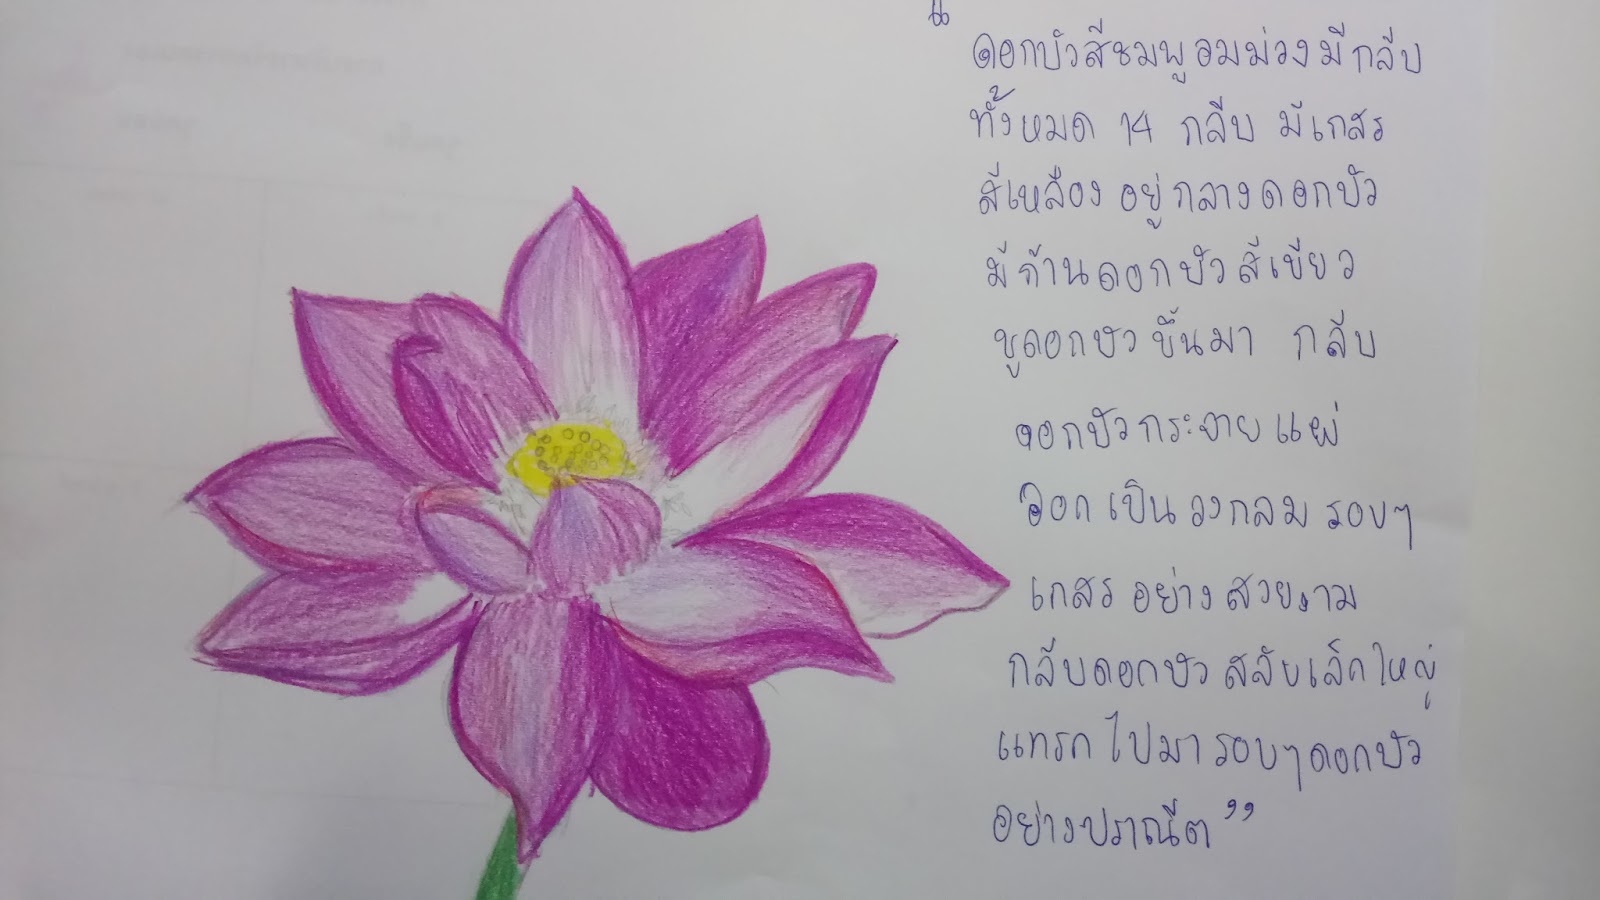 “ดอกบัวสีชมพูอมม่วงมีกลีบ
ทั้งหมด 14 กลีบ มีเกสร
สีเหลือง อยู่กลางดอกบัว
มีก้านดอกบัวสีเขียว
ชูดอกบัวขึ้นมา กลีบ
ดอกบัวกระจายแผ่
ออกเป็นวงกลมรอบๆ
เกสรอย่างสวยงาม
กลีบดอกบัวสลับเล็กใหญ่
แทรกไปมารอบๆดอกบัว
อย่างปราณีต”